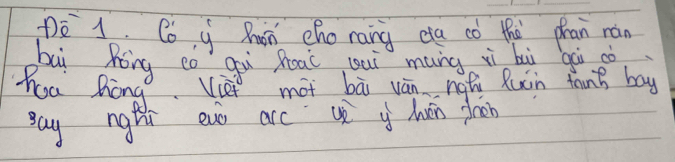 Đề 1. Có ý kiến cho rằng ta có thể phàn nàn
bụi hồng có gai hoặc vui mừng vì bụi gai có
hoa hồng. Viết một bài văn nghị luận trình bày
suy nghĩ của về ý kiến